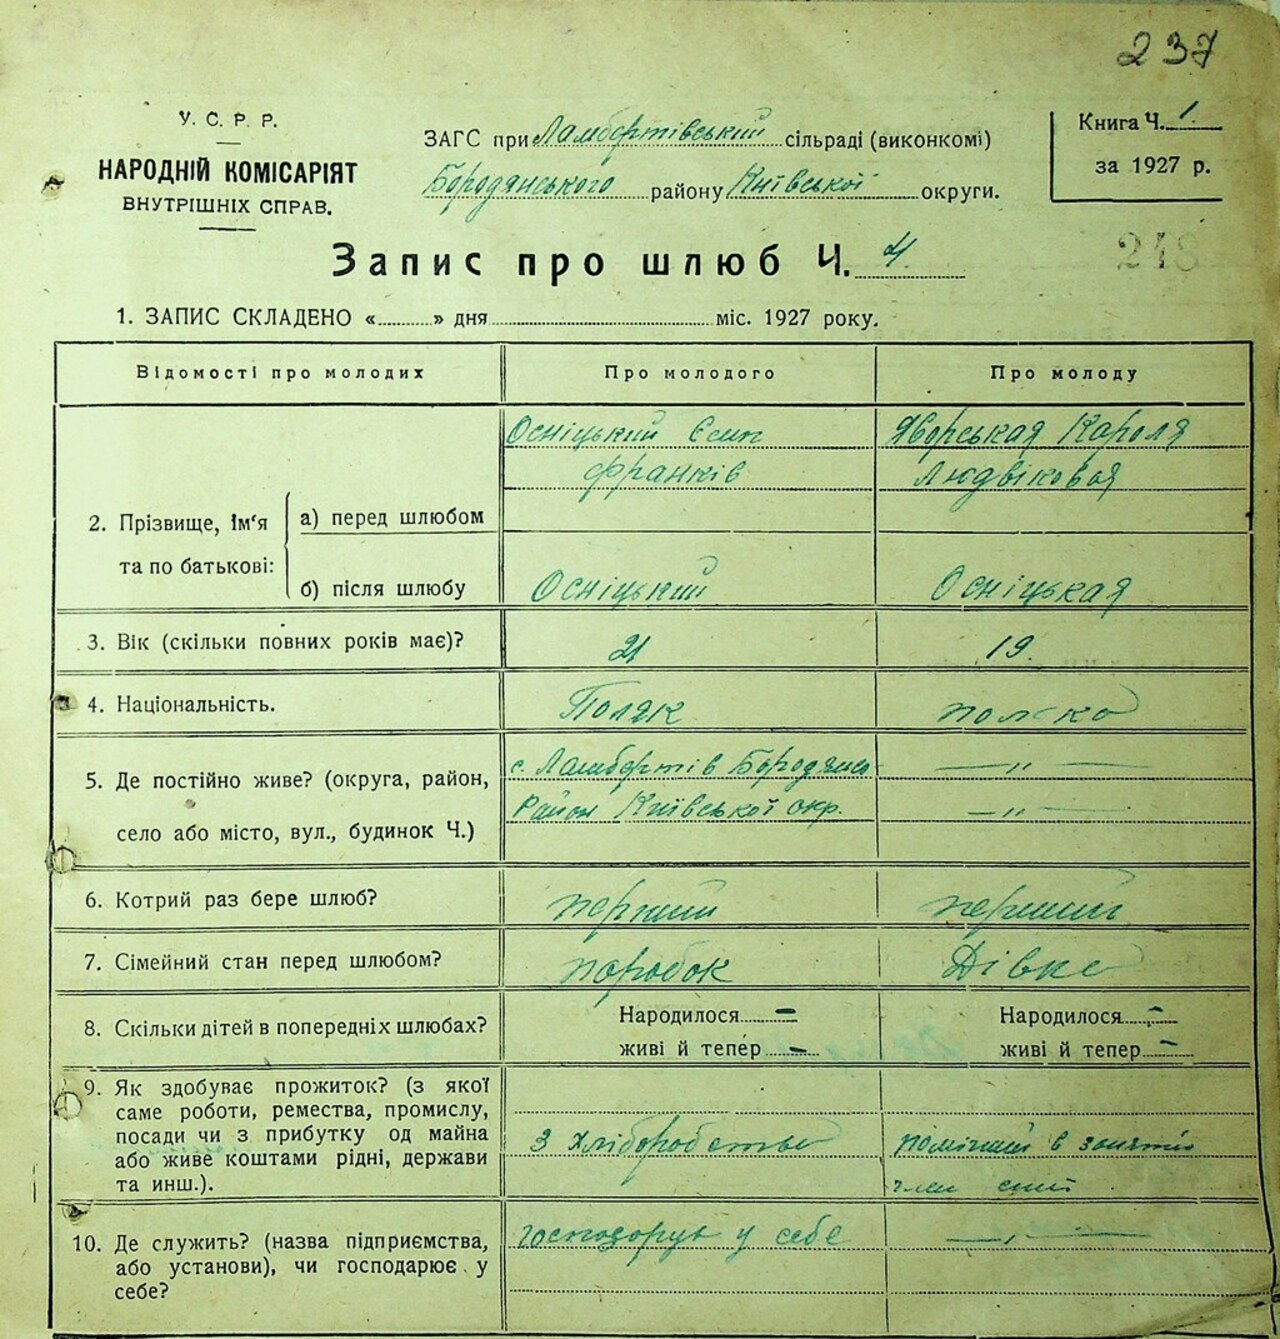 237
У. С. Р. Р.
НАРОДНІЙ КОМІСАРІЯТ
ВНУТРІШНІХ СПРАВ.
ЗАГС при Ламбертівський сільраді (виконкомі)
Бородянського району Київської округи.
Книга Ч. 1.
за 1927 р.
248
Запис про шлюб Ч. 4.
1. ЗАПИС СКЛАДЕНО « » дня міс. 1927 року.
Відомості про молодих
Про молодого
Про молоду
2. Прізвище, Ім'я та по батькові:
а) перед шлюбом
Осніцький
Франків
Яворськая Кароля
Людвіковая
б) після шлюбу
Осніцький
Осніцькая
3. Вік (скільки повних років має)?
21
19.
4. Національність.
Поляк
полька
5. Де постійно живе? (округа, район,
село або місто, вул., будинок Ч.)
с. Ламбертів Бородянс
Район Київської окр.
— „ —
— „ —
6. Котрий раз бере шлюб?
перший
перший
7. Сімейний стан перед шлюбом?
паробок
Дівка
8. Скільки дітей в попередніх шлюбах?
Народилося –
живі й тепер –
Народилося –
живі й тепер –
9. Як здобуває прожиток? (з якої
саме роботи, ремества, промислу,
посади чи з прибутку од майна
або живе коштами рідні, держави
та инш.).
З хліборобства
в
10. Де служить? (назва підприємства,
або установи), чи господарює у
себе?
господарує у себе
— „ —